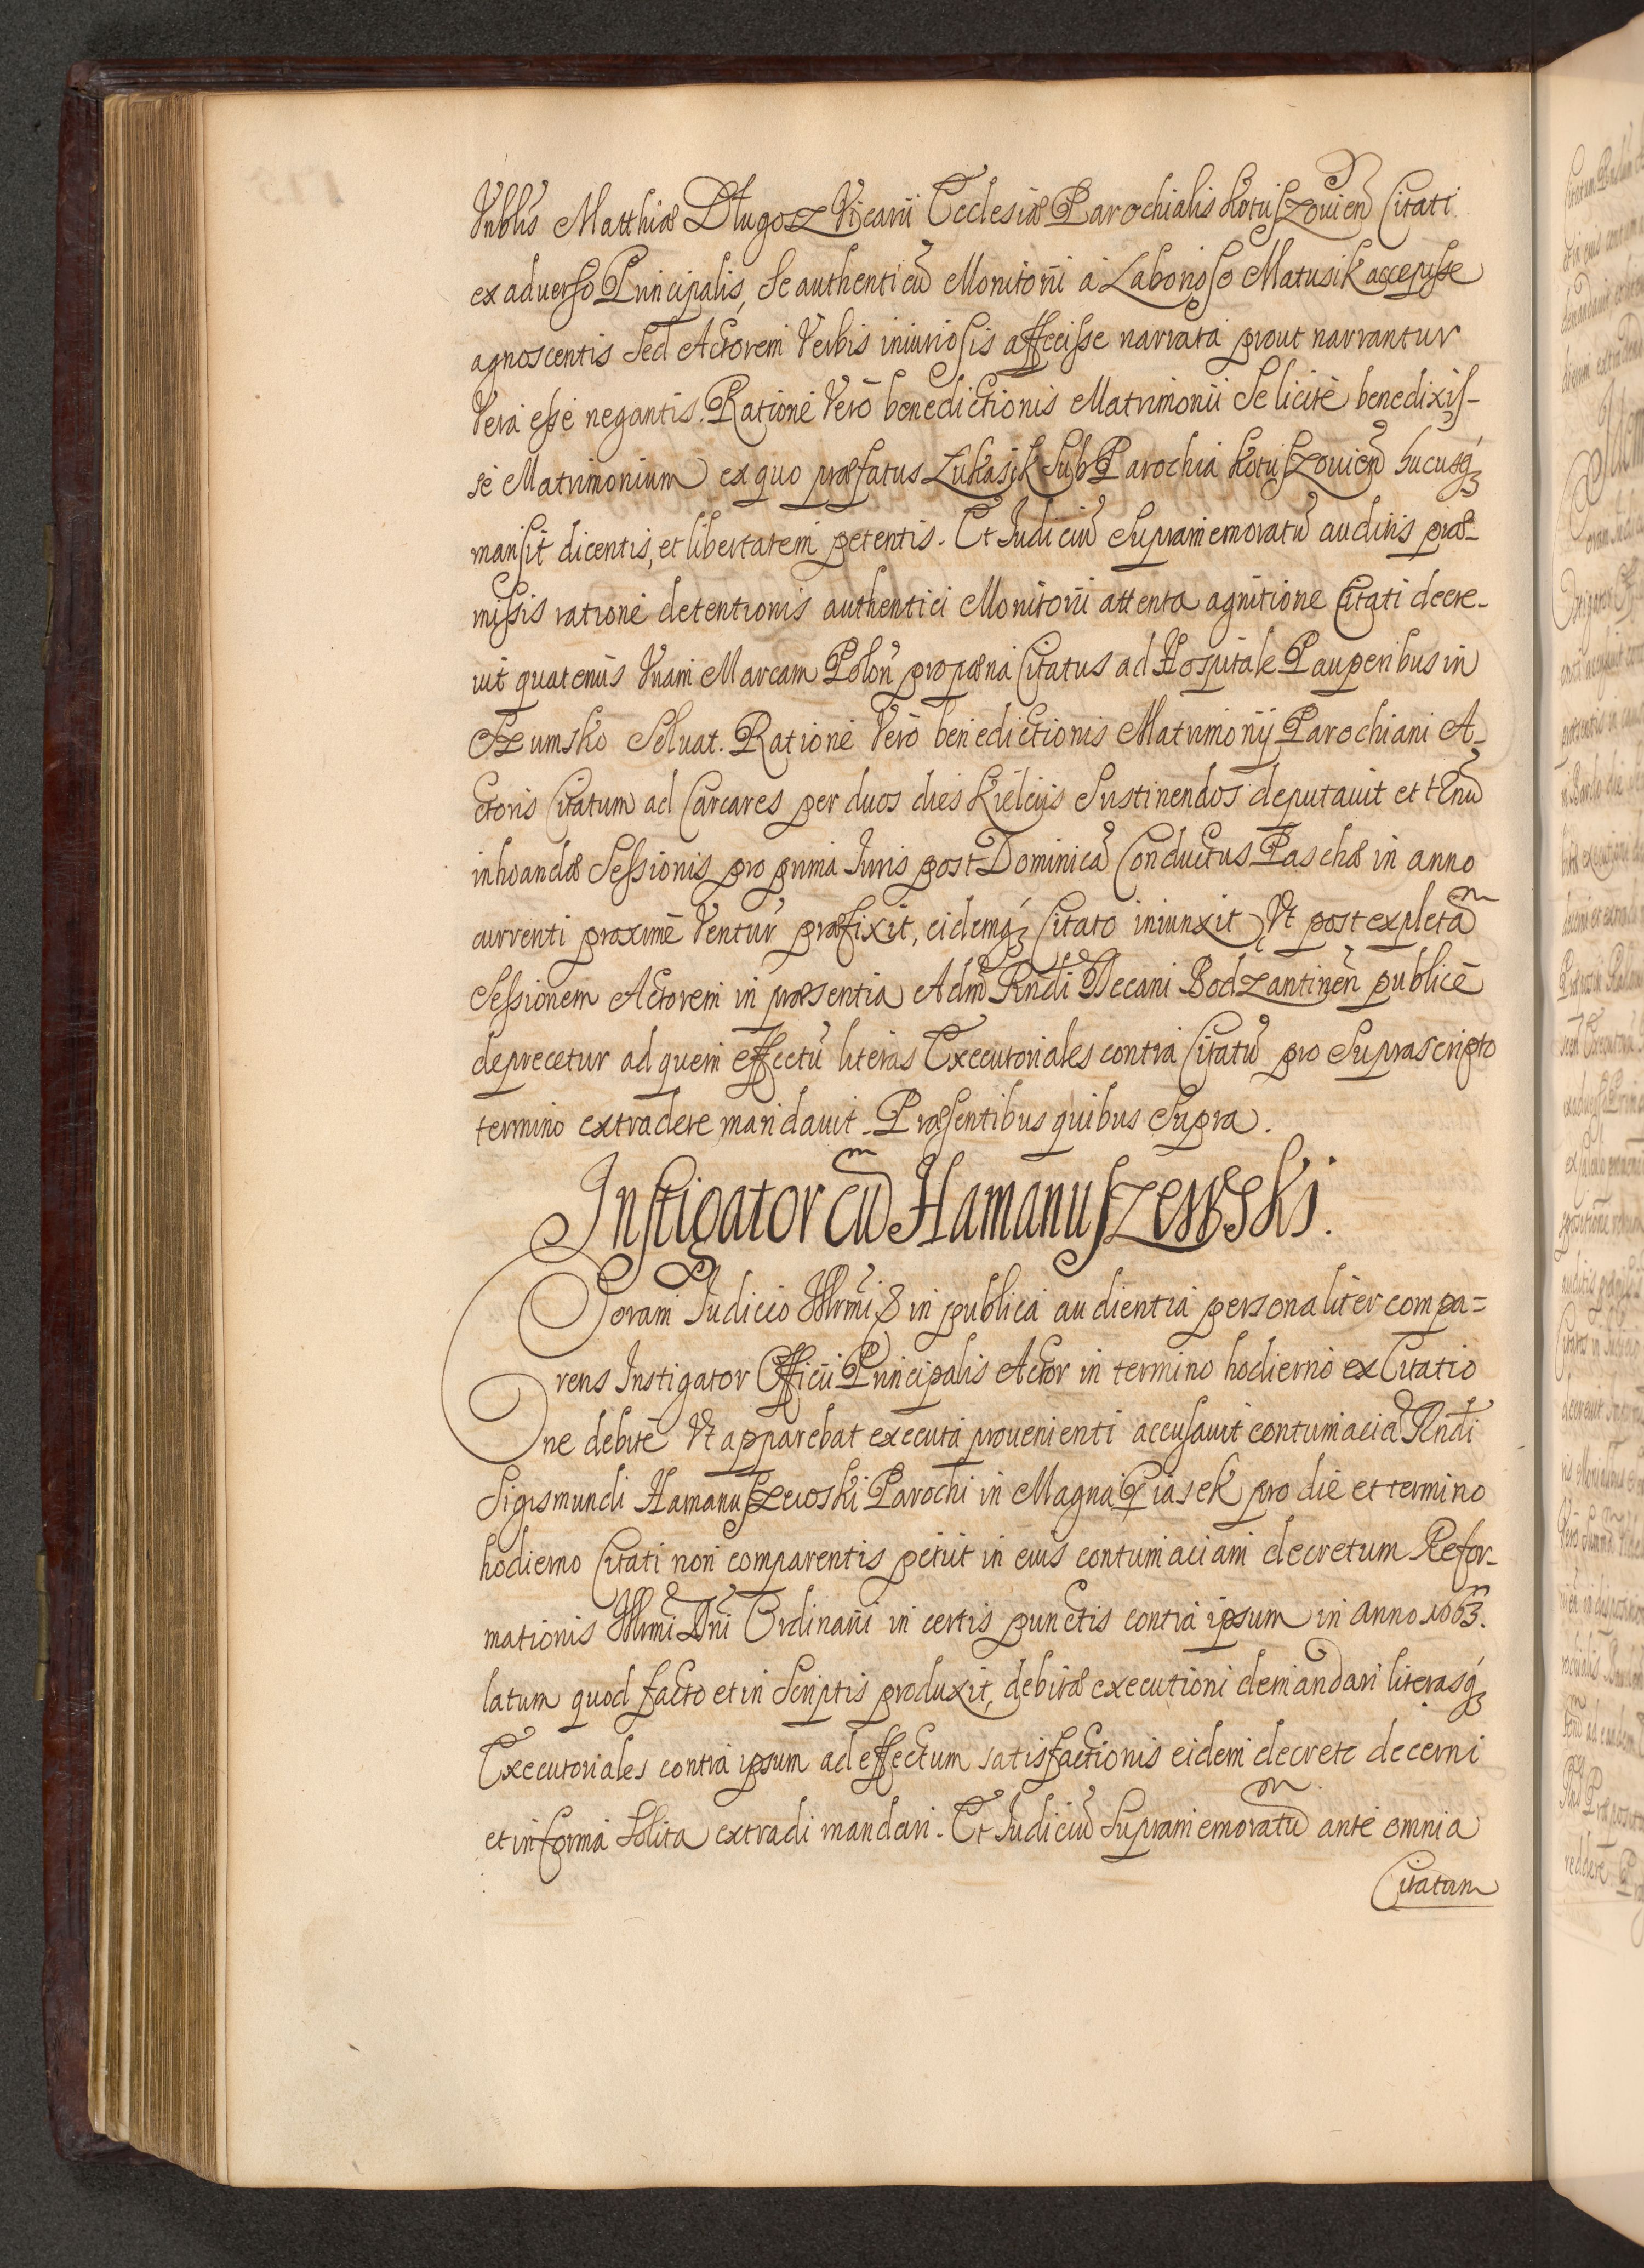 Vnblis Matthiæ Długosz Vicarii Ecclesiæ Parochialis Kotuszouien̄ Citati
ex aduerso Principalis, Se authenticū Monitorii à Laborioso Matusik accepisse
agnoscentis Sed Actorem Verbis iniuriosis affecisse narrata prout narrantur
Vera esse negantis. Ratione Verò benedictionis Matrimonii Se licitè benedixis-
se Matrimonium ex quo præfatus Łukasik Sub Parochia Kotuszouien̄ hucusq́ꝫ
mansit dicentis, et libertatem petentis. Et Judiciū Supramemoratū auditis præ-
missis ratione detentionis authentici Monitorii attenta agnitione Citati decre-
uit quatenus Vnam Marcam Polon̄ pro pœna Citatus ad Hospitale Pauperibus in
Szumsko Soluat. Ratione Verò benedictionis Matrimonij Parochiani A-
ctoris Citatum ad Carcares per duos dies Kielcijs Sustinendos deputauit et tēnū
inhoandæ Sessionis pro prima Iuris post Dominicā Conductus Paschæ in anno
currenti proximè Ventur̄ præfixit, eidemq́ꝫ Citato iniunxit Vt post expletā
Sessionem Actorem in præsentia Adm̄ Rndi Decani Bodzantinen̄ publicè
deprecetur ad quem effectū literas Executoriales contra Citatū pro Suprascripto
termino extradere mandauit. Præsentibus quibus Supra.
Instigator cū Hamanuszewski.
Coram Judicio Illrmi in publica audientia personaliter compa=
rens Instigator Officii Principalis Actor in termino hodierno ex Citatio
ne debitè Vt apparebat executa prouenienti accusauit contumaciā Rndi
Sigismundi Hamanuszewski Parochi in Magna Piasek pro die et termino
hodierno Citati non comparentis petiit in eius contumaciam decretum Refor-
mationis Illrmi Dni Ordinarii in certis punctis contra ipsum in anno 1663.
latum quod facto et in Scriptis produxit, debitæ executioni demandari literasq́ꝫ
Executoriales contra ipsum ad effectum satisfactionis eidem decreto decerni
et in forma Solita extradi mandari. Et Judiciū Supramemoratū ante omnia
Citatum